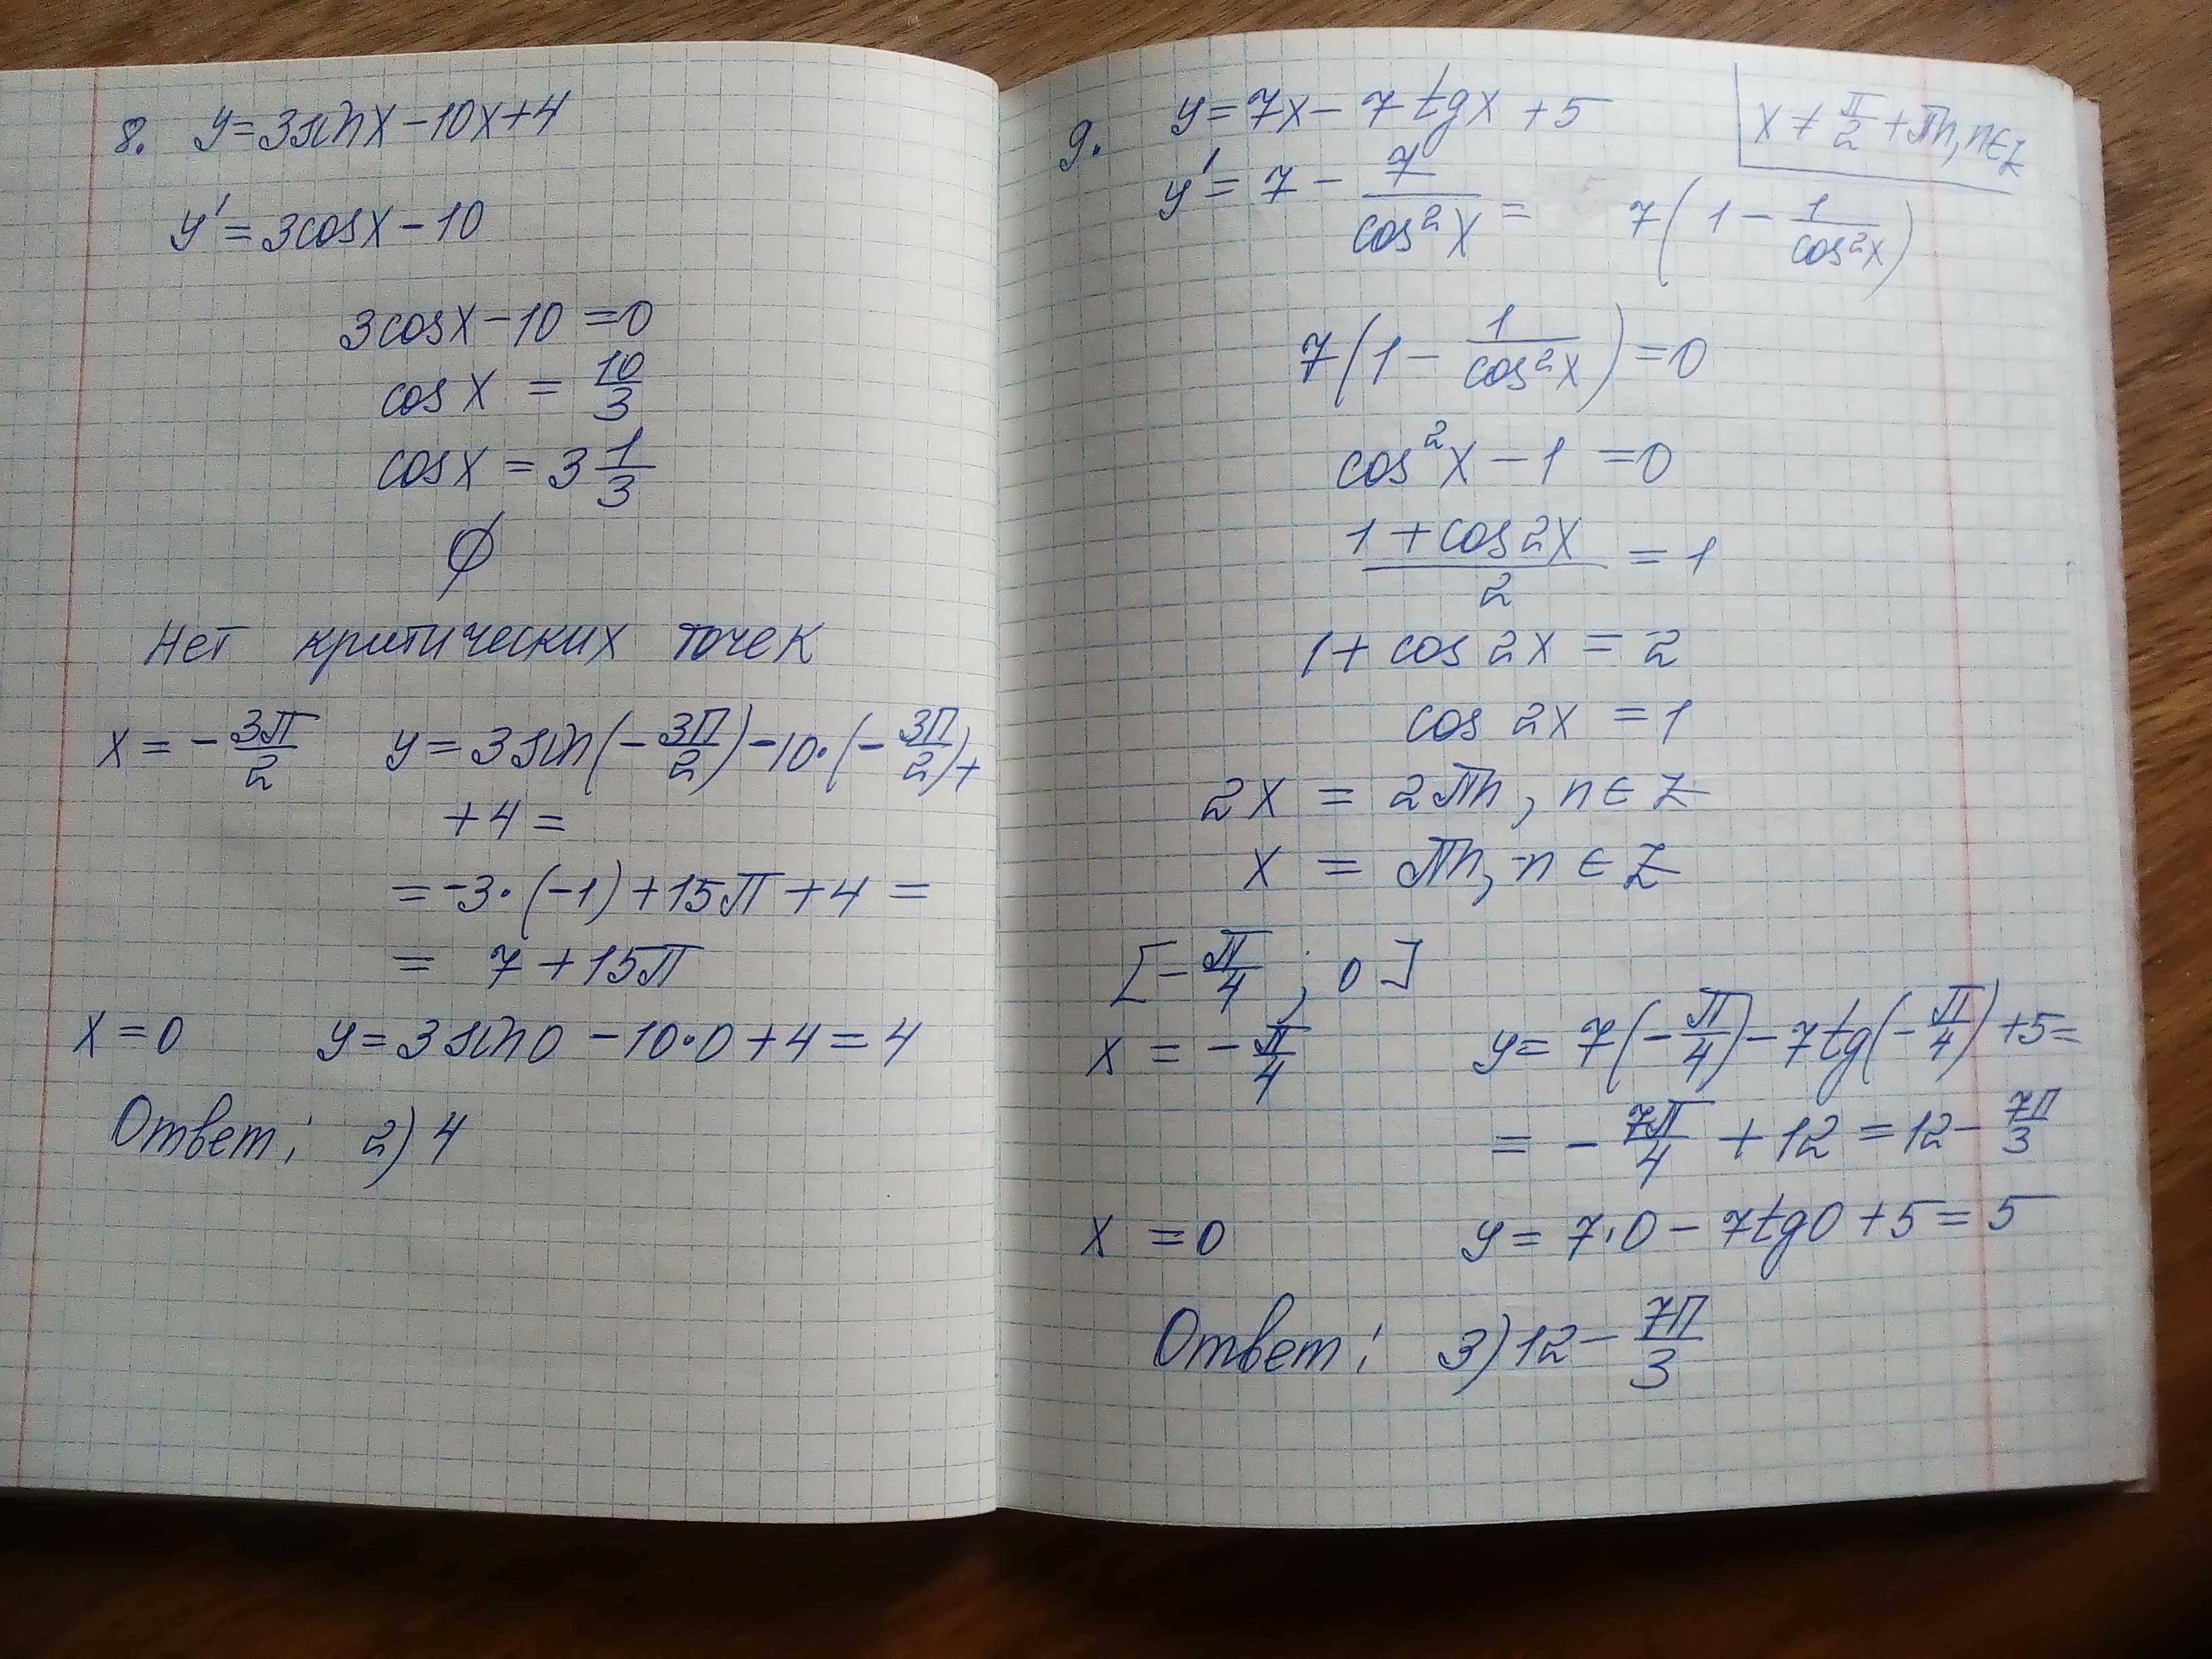 8. y=3sinx-10x+4
y'=3cosx-10
3cosx-10=0
cosx = 10/3
cosx = 3 1/3
∅
Нет критических точек
x = -3π/2 y=3sin(-3π/2)-10·(-3π/2)+
+4=
=-3·(-1)+15π+4=
= 7+15π
x=0 y=3sin0-10·0+4=4
Ответ: 2) 4
9. y=7x-7tgx+5 x≠π/2+πn, n∈Z
y'=7-7/cos²x = 7(1-1/cos²x)
7(1-1/cos²x)=0
cos²x-1=0
(1+cos2x)/2=1
1+cos2x=2
cos 2x=1
2x = 2πn, n∈Z
x = πn, n∈Z
[-π/4; 0]
x = -π/4 y=7(-π/4)-7tg(-π/4)+5=
= -7π/4+12=12-7π/3
x=0 y=7·0-7tg0+5=5
Ответ: 3) 12-7π/3